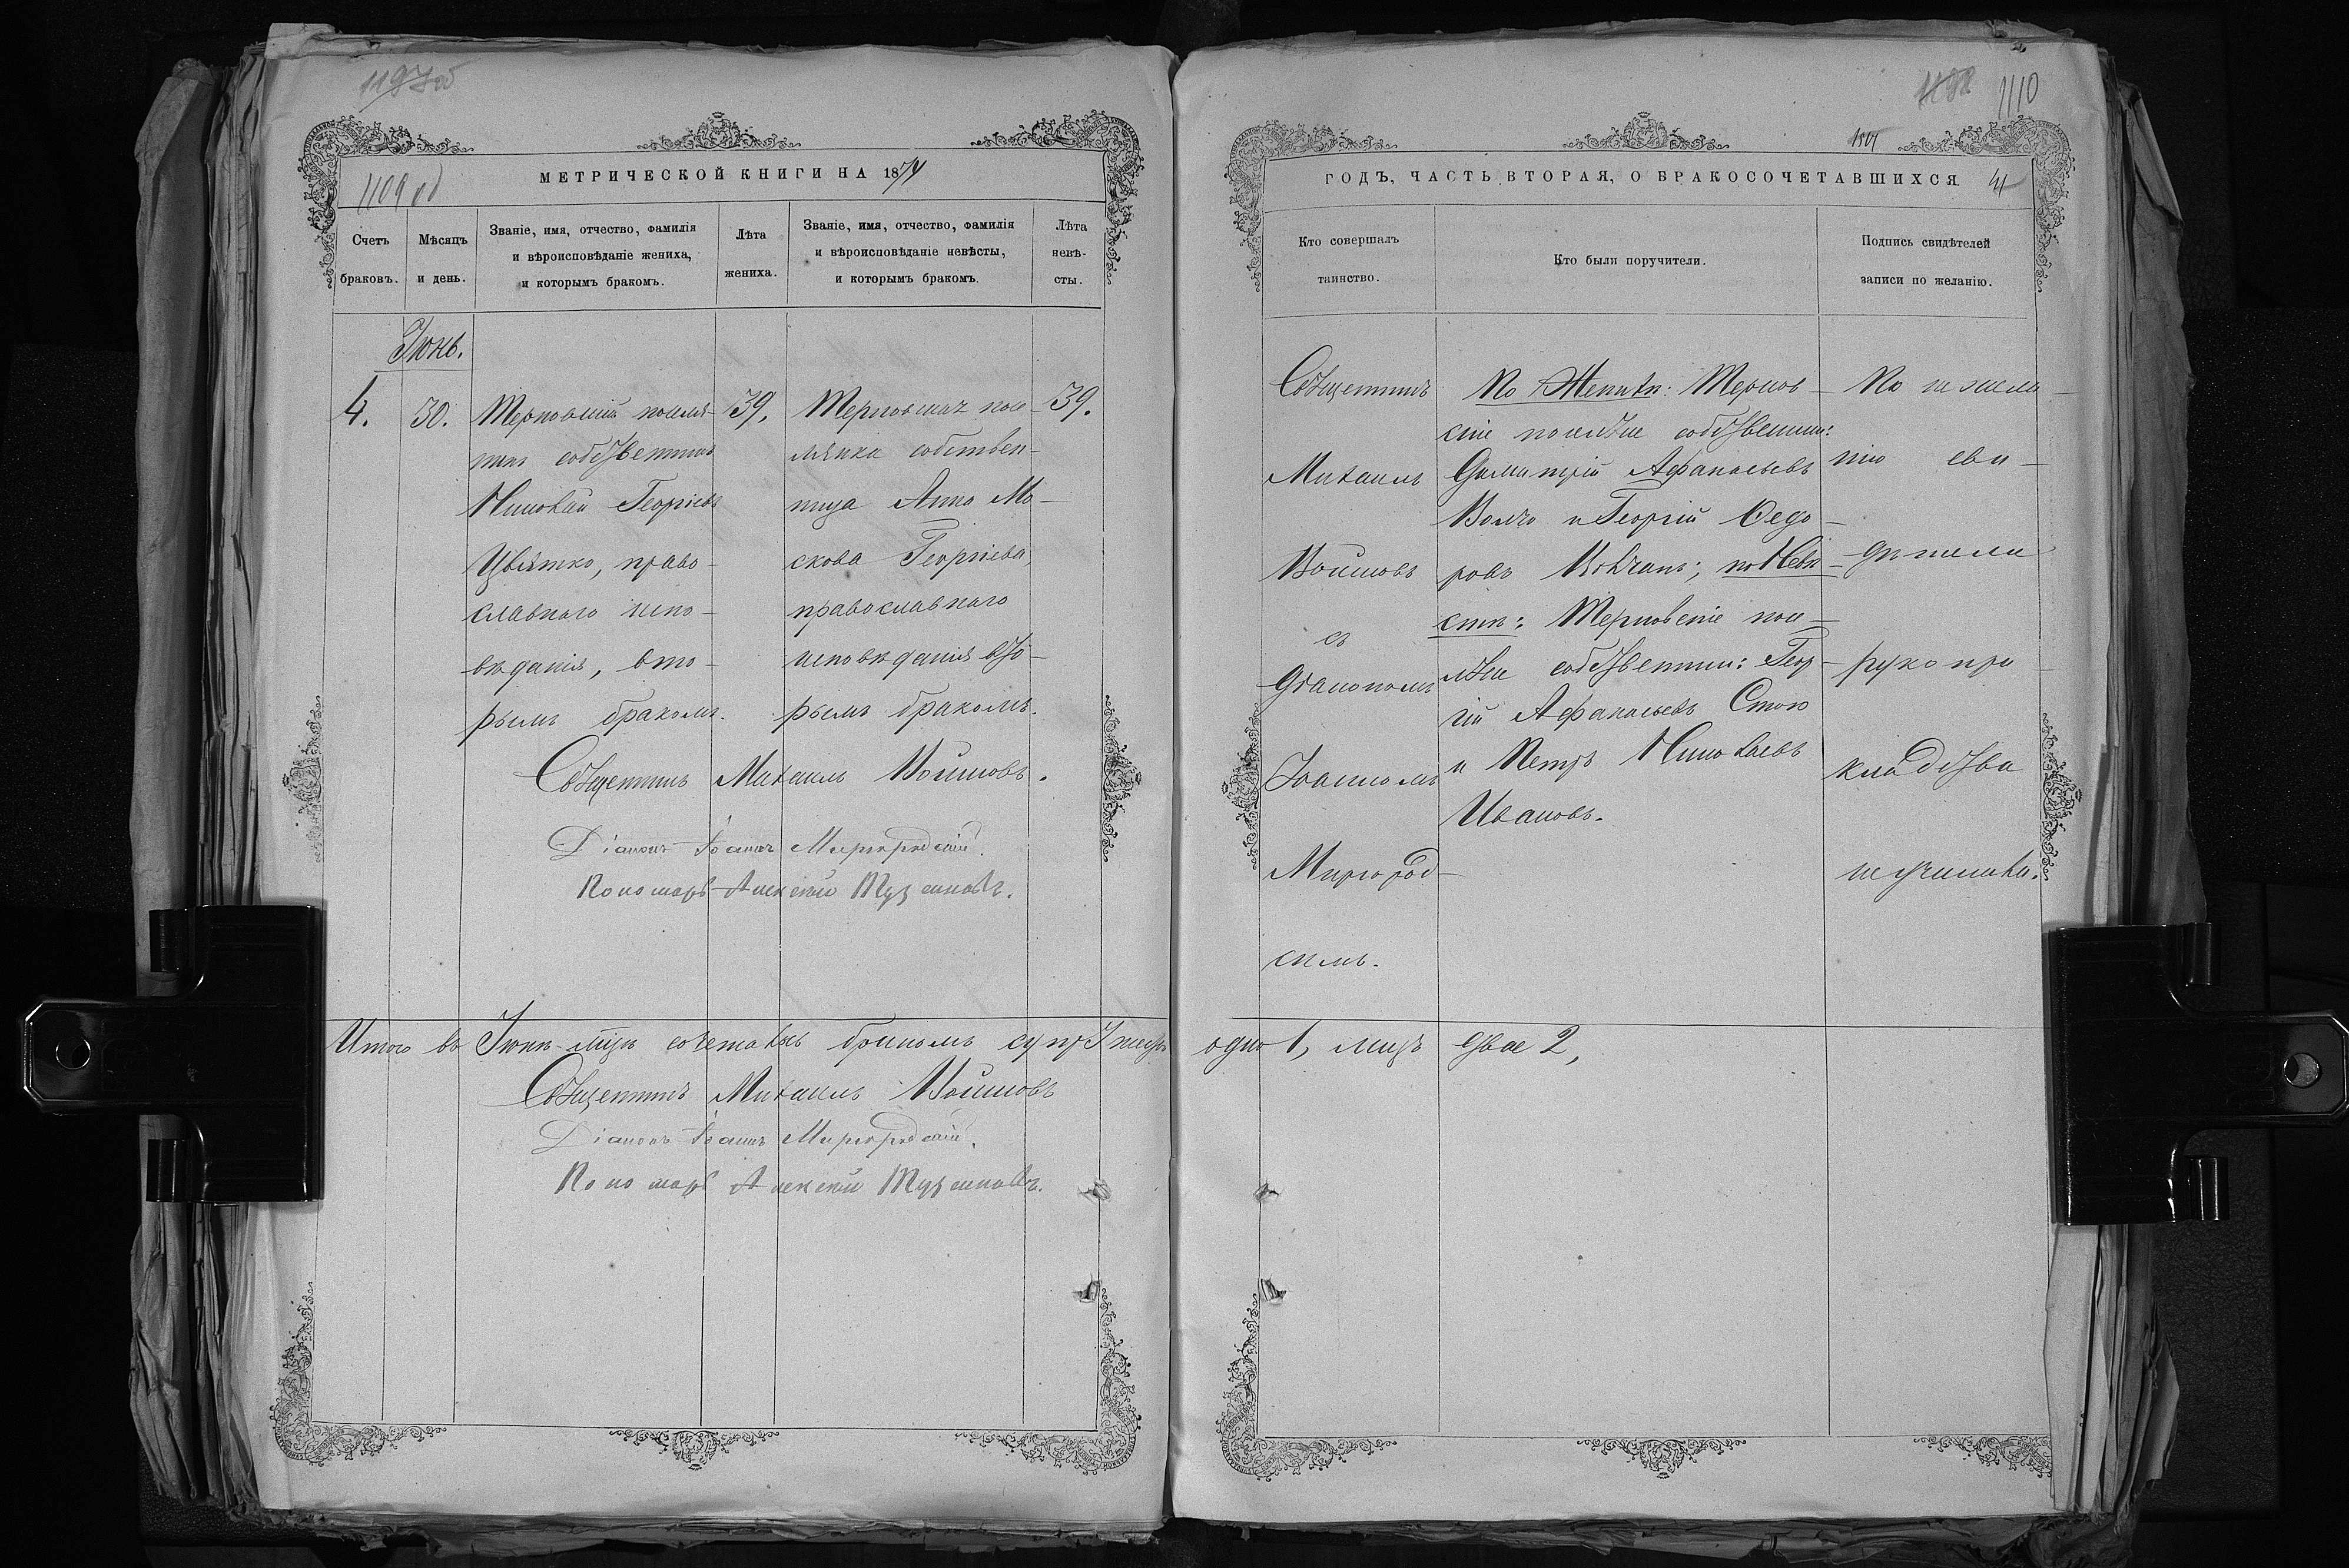 1109 об
МЕТРИЧЕСКОЙ КНИГИ НА 1874
Счетъ браковъ.
Мѣсяцъ и день.
Званіе, имя, отчество, фамилія
и вѣроисповѣданіе жениха,
и которымъ бракомъ.
Лѣта жениха.
Званіе, имя, отчество, фамилія
и вѣроисповѣданіе невѣсты,
и которымъ бракомъ.
Лѣта невѣ-
сты.
Іюнь.
4.
30.
Терновскій поселя-
нинъ собственникъ
Николай Георгіевъ
Цвѣтко, право-
славнаго испо-
вѣданія, вто-
рымъ бракомъ.
39.
Терновская посе-
лянка собствен-
ница Анна Мо-
скова Георгіева,
православнаго
исповѣданія вто-
рымъ бракомъ.
39.
Священникъ Михаилъ Войновъ.
Діаконъ Іоаннъ Миргородскій.
Пономарь Алексѣй
Итого въ Іюнѣ мцѣ сочетавъ бракомъ супружествъ одно 1, лицъ двое 2,
Священникъ Михаилъ Войновъ
Діаконъ Іоаннъ Миргородскій.
Пономарь Алексѣй
1110
ГОДЪ, ЧАСТЬ ВТОРАЯ, О БРАКОСОЧЕТАВШИХСЯ
Кто совершалъ
таинство.
Кто были поручители.
Подпись свидѣтелей
записи по желанію.
Священникъ
Михаилъ
Войновъ
съ
Діакономъ
Іоанномъ
Миргород-
скимъ.
По Женихѣ: Тернов-
скіе поселяне собственни:
Димитрій Афанасьевъ
Волчо и Георгій Ѳедо-
ровъ по Невѣ-
стѣ: Терновскіе посе-
ляне собственни: Геор-
гій Афанасьевъ Стою
и Петръ Николаевъ
Ивановъ.
По не жела-
нію сви-
дѣтели
рукопри-
кладства
не учинили.